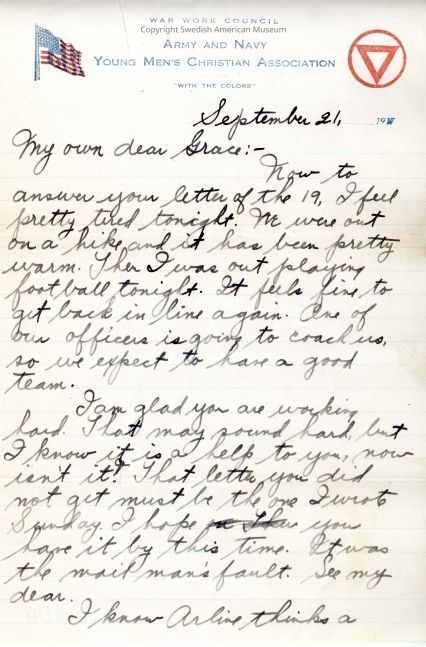 WAR WORK COUNCIL
Copyright Swedish American Museum
ARMY AND NAVY
YOUNG MEN'S CHRISTIAN ASSOCIATION
"WITH THE COLORS"
September 21, 1917
My own dear Grace:-
Now to
answer your letter of the 19, I feel
pretty tired tonight. We were out
on a hike, and it has been pretty
warm. Then I was out playing
football tonight. It feels fine to
get back in line again. One of
our officers is going to coach us,
so we expect to have a good
team.
I am glad you are working
hard. That may sound hard, but
I know it is a help to you, now
isn't it? That letter you did
not get must be the one I wrote
Sunday. I hope you
have it by this time. It was
the mail man's fault. See my
dear.
I know Arline thinks a